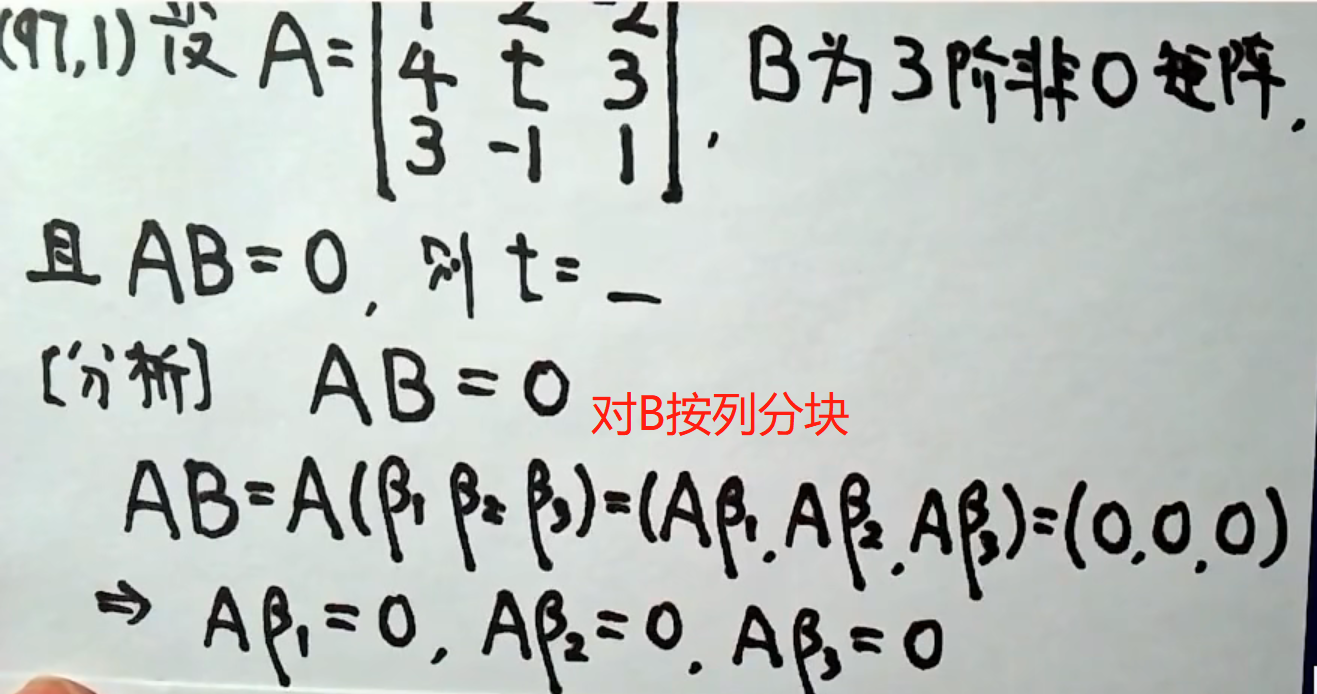 (97,1) 设 A = [1 2 -2
4 t 3
3 -1 1], B为3阶非0矩阵.
且 AB = 0, 则 t = _
[分析] AB = 0 对B按列分块
AB = A(β₁ β₂ β₃) = (Aβ₁, Aβ₂, Aβ₃) = (0, 0, 0)
⇒ Aβ₁ = 0, Aβ₂ = 0, Aβ₃ = 0